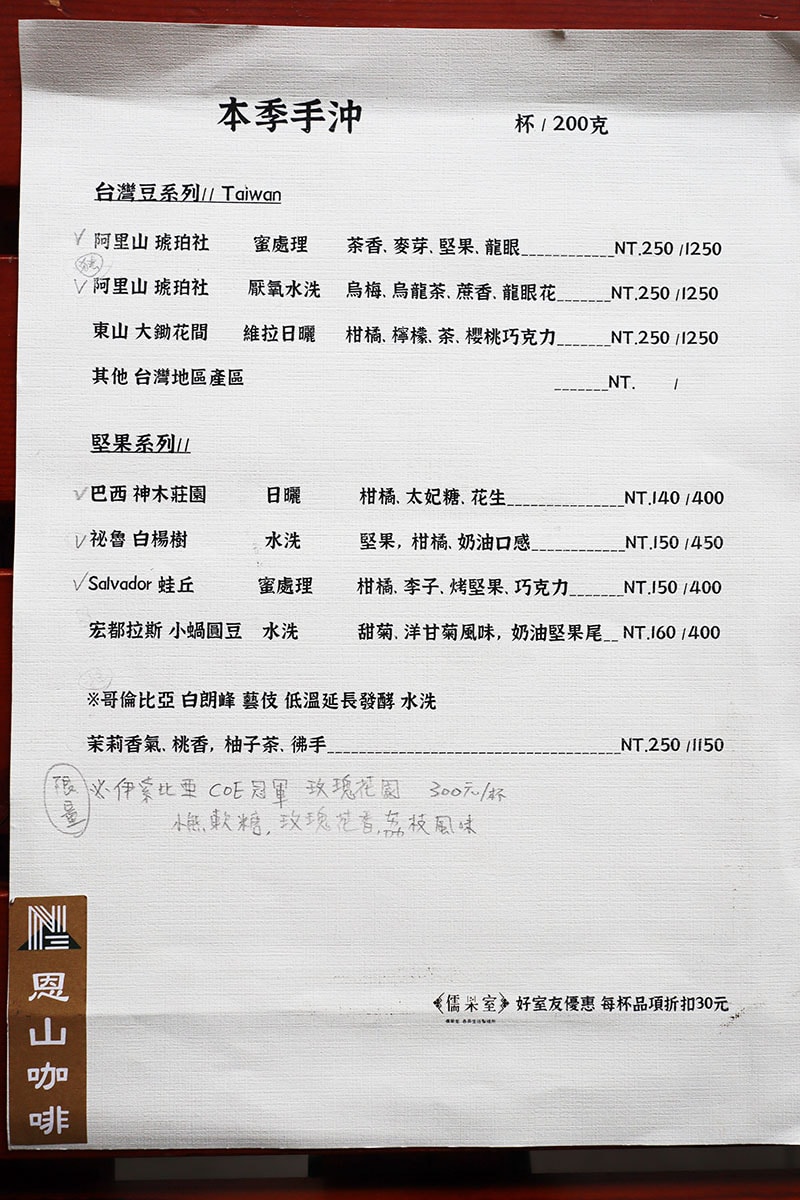 本季手沖 杯 / 200克
台灣豆系列// Taiwan
✓ 阿里山 琥珀社 蜜處理 茶香、麥芽、堅果、龍眼____________NT.250 /1250
✓ 阿里山 琥珀社 厭氧水洗 烏梅、烏龍茶、蔗香、龍眼花_______NT.250 /1250
東山 大鋤花間 維拉日曬 柑橘、檸檬、茶、櫻桃巧克力_______NT.250 /1250
其他 台灣地區產區 _______NT. /
堅果系列//
✓ 巴西 神木莊園 日曬 柑橘、太妃糖、花生_______________NT.140 /400
✓ 祕魯 白楊樹 水洗 堅果，柑橘、奶油口感____________NT.150 /450
✓ Salvador 蛙丘 蜜處理 柑橘、李子、烤堅果、巧克力_______NT.150 /400
宏都拉斯 小蝸圓豆 水洗 甜菊、洋甘菊風味，奶油堅果尾__ NT.160 /400
※哥倫比亞 白朗峰 藝伎 低溫延長發酵 水洗
茉莉香氣、桃香，柚子茶、彿手______________________________________NT.250 /1150
限量 ※伊索比亞 COE冠軍 玫瑰花園 300元/杯
軟糖，玫瑰花香，荔枝風味
N
恩山咖啡
儒果室 好室友優惠 每杯品項折扣30元